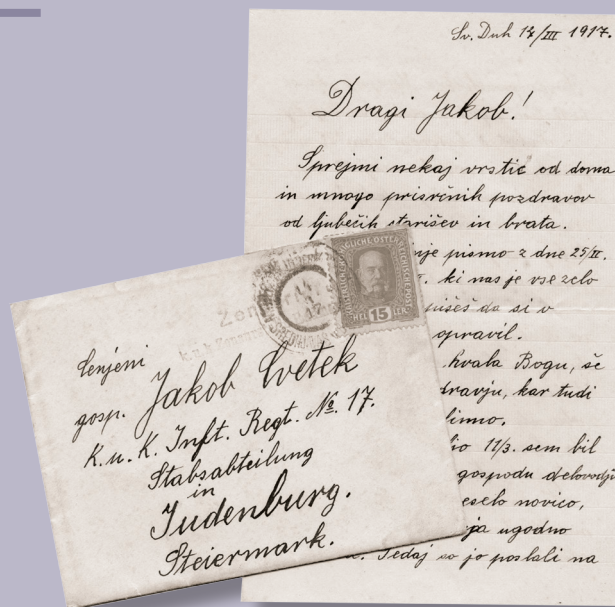 Sv. Duh 14/III 1917.
Dragi Jakob!
Sprejmi nekaj vrstic od doma
in mnogo prisrčnih pozdravov
od ljubečih starišev in brata.
pismo z dne 25/II.
ki nas je vse zelo
pišeš da si v
opravil.
hvala Bogu, še
zdravju, kar tudi
11/3. sem bil
gospodu delovodji
veselo novico,
ugodno
Sedaj so jo poslali na
15
Cenjeni
gosp. Jakob Cvetek
K. u. K. Inft. Regt. №. 17.
Stabsabteilung
in
Judenburg.
Steiermark.